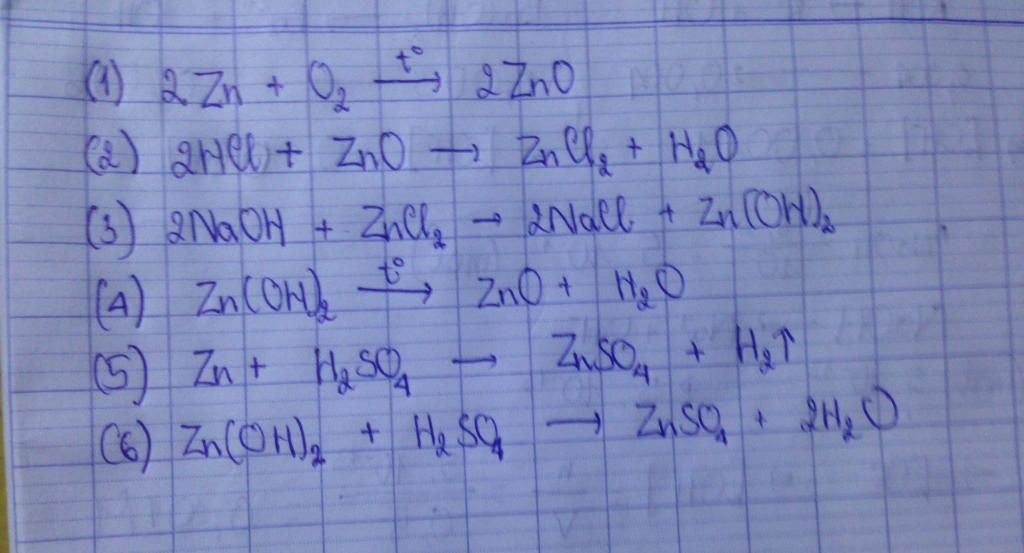 (1) 2Zn + O₂ —t°→ 2ZnO
(2) 2HCl + ZnO → ZnCl₂ + H₂O
(3) 2NaOH + ZnCl₂ → 2NaCl + Zn(OH)₂
(4) Zn(OH)₂ —t°→ ZnO + H₂O
(5) Zn + H₂SO₄ → ZnSO₄ + H₂↑
(6) Zn(OH)₂ + H₂SO₄ → ZnSO₄ + 2H₂O